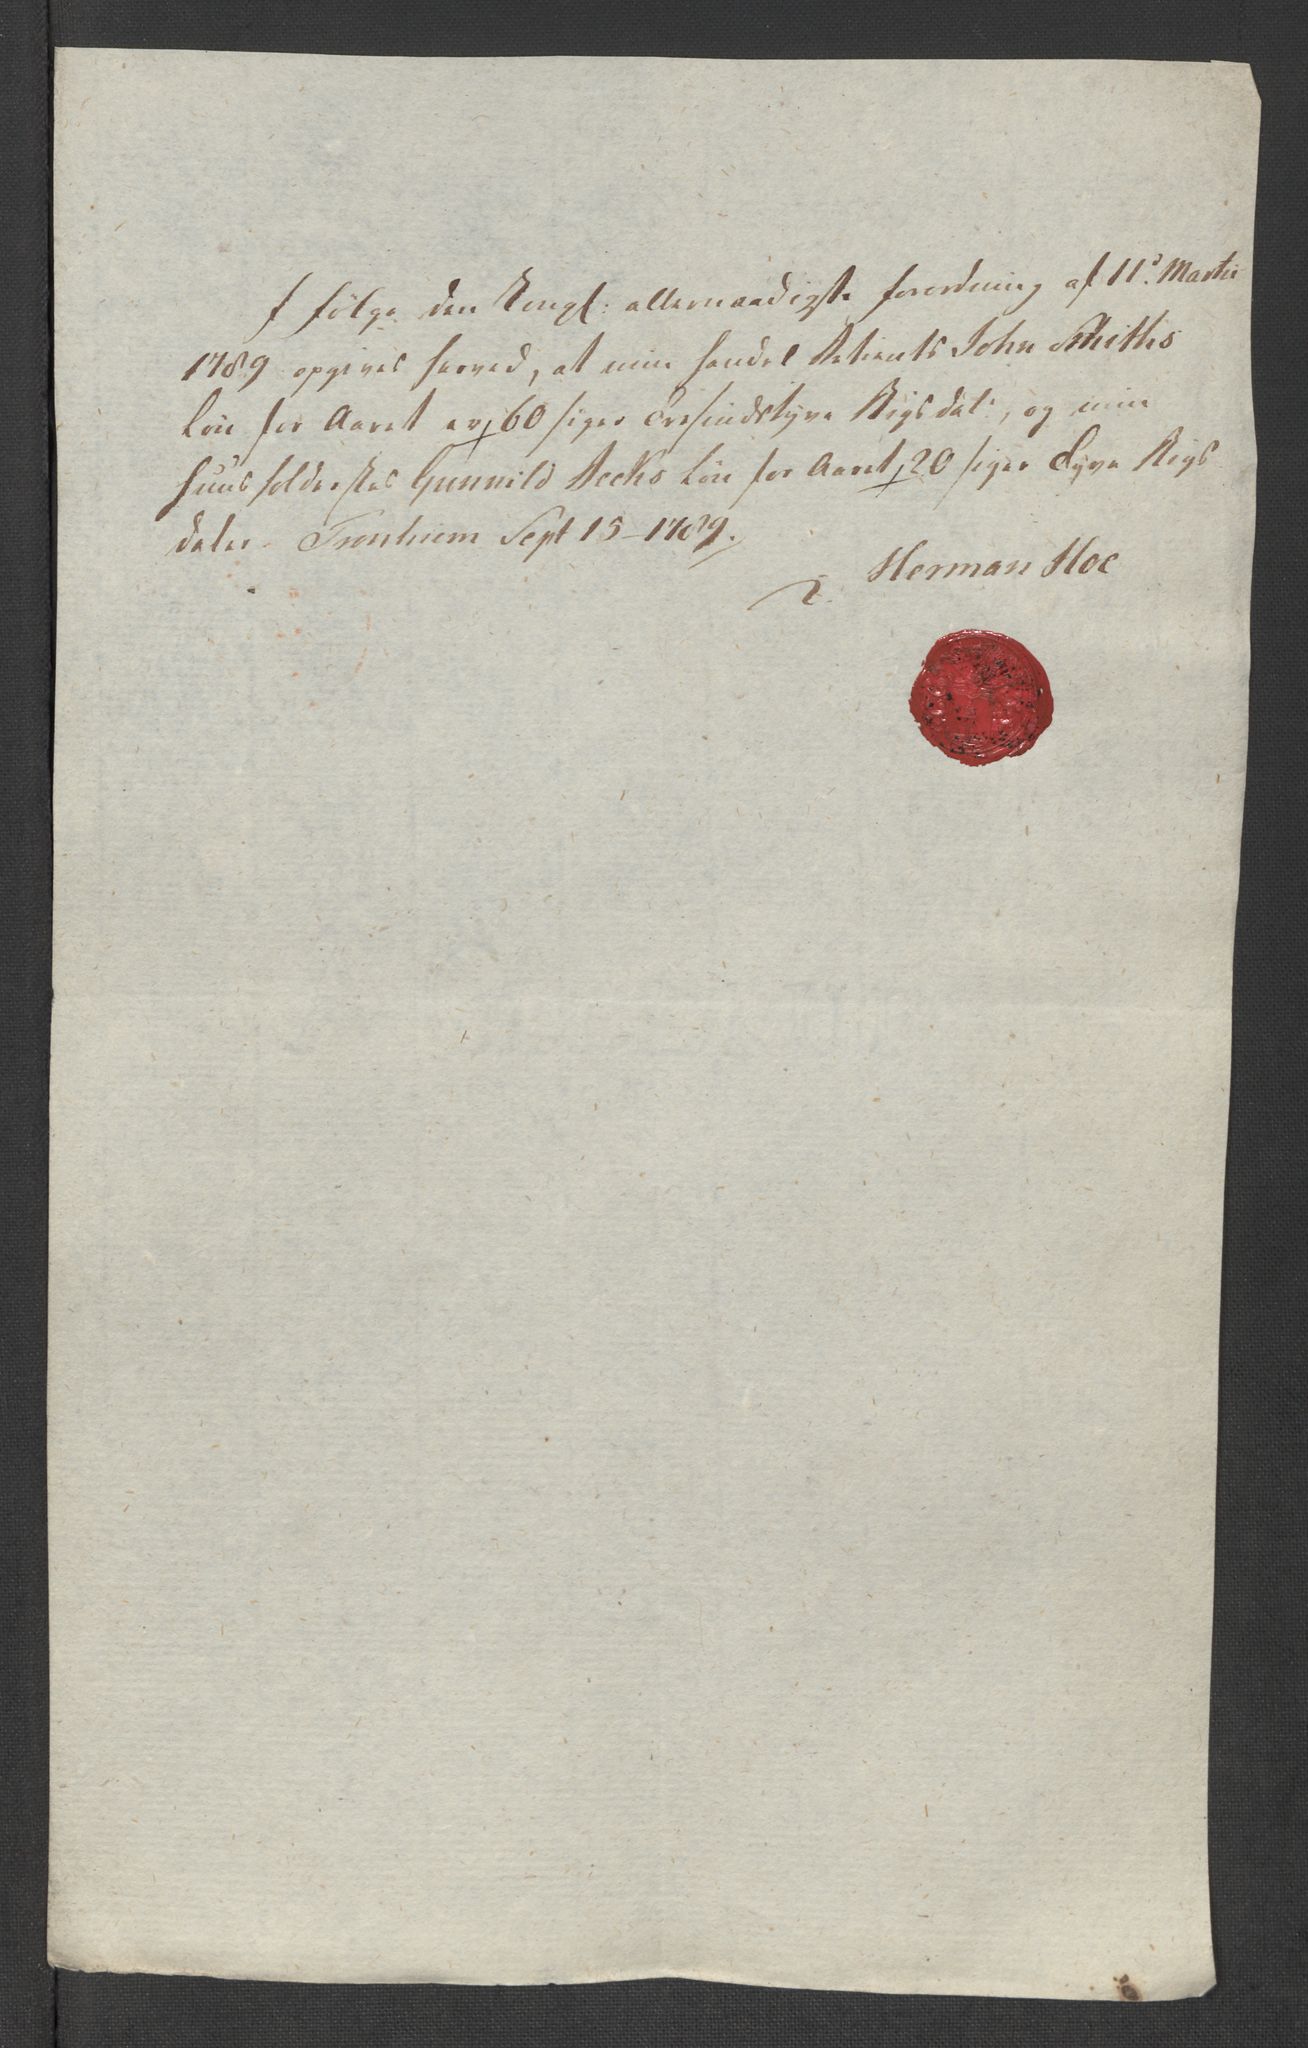 I følge den Kongl: allernaadigste forordning af 11.' Martii
1789 opgives herved, at min handel Betients John Smiths
Løn for Aaret er 60 siger Tresindstyve Rigsdal:, og min
huusholderskes Gunnild Løn for Aaret 20 siger Tyve Rigs
daler. Tronhiem Sept 15 - 1789.
Herman Hoe